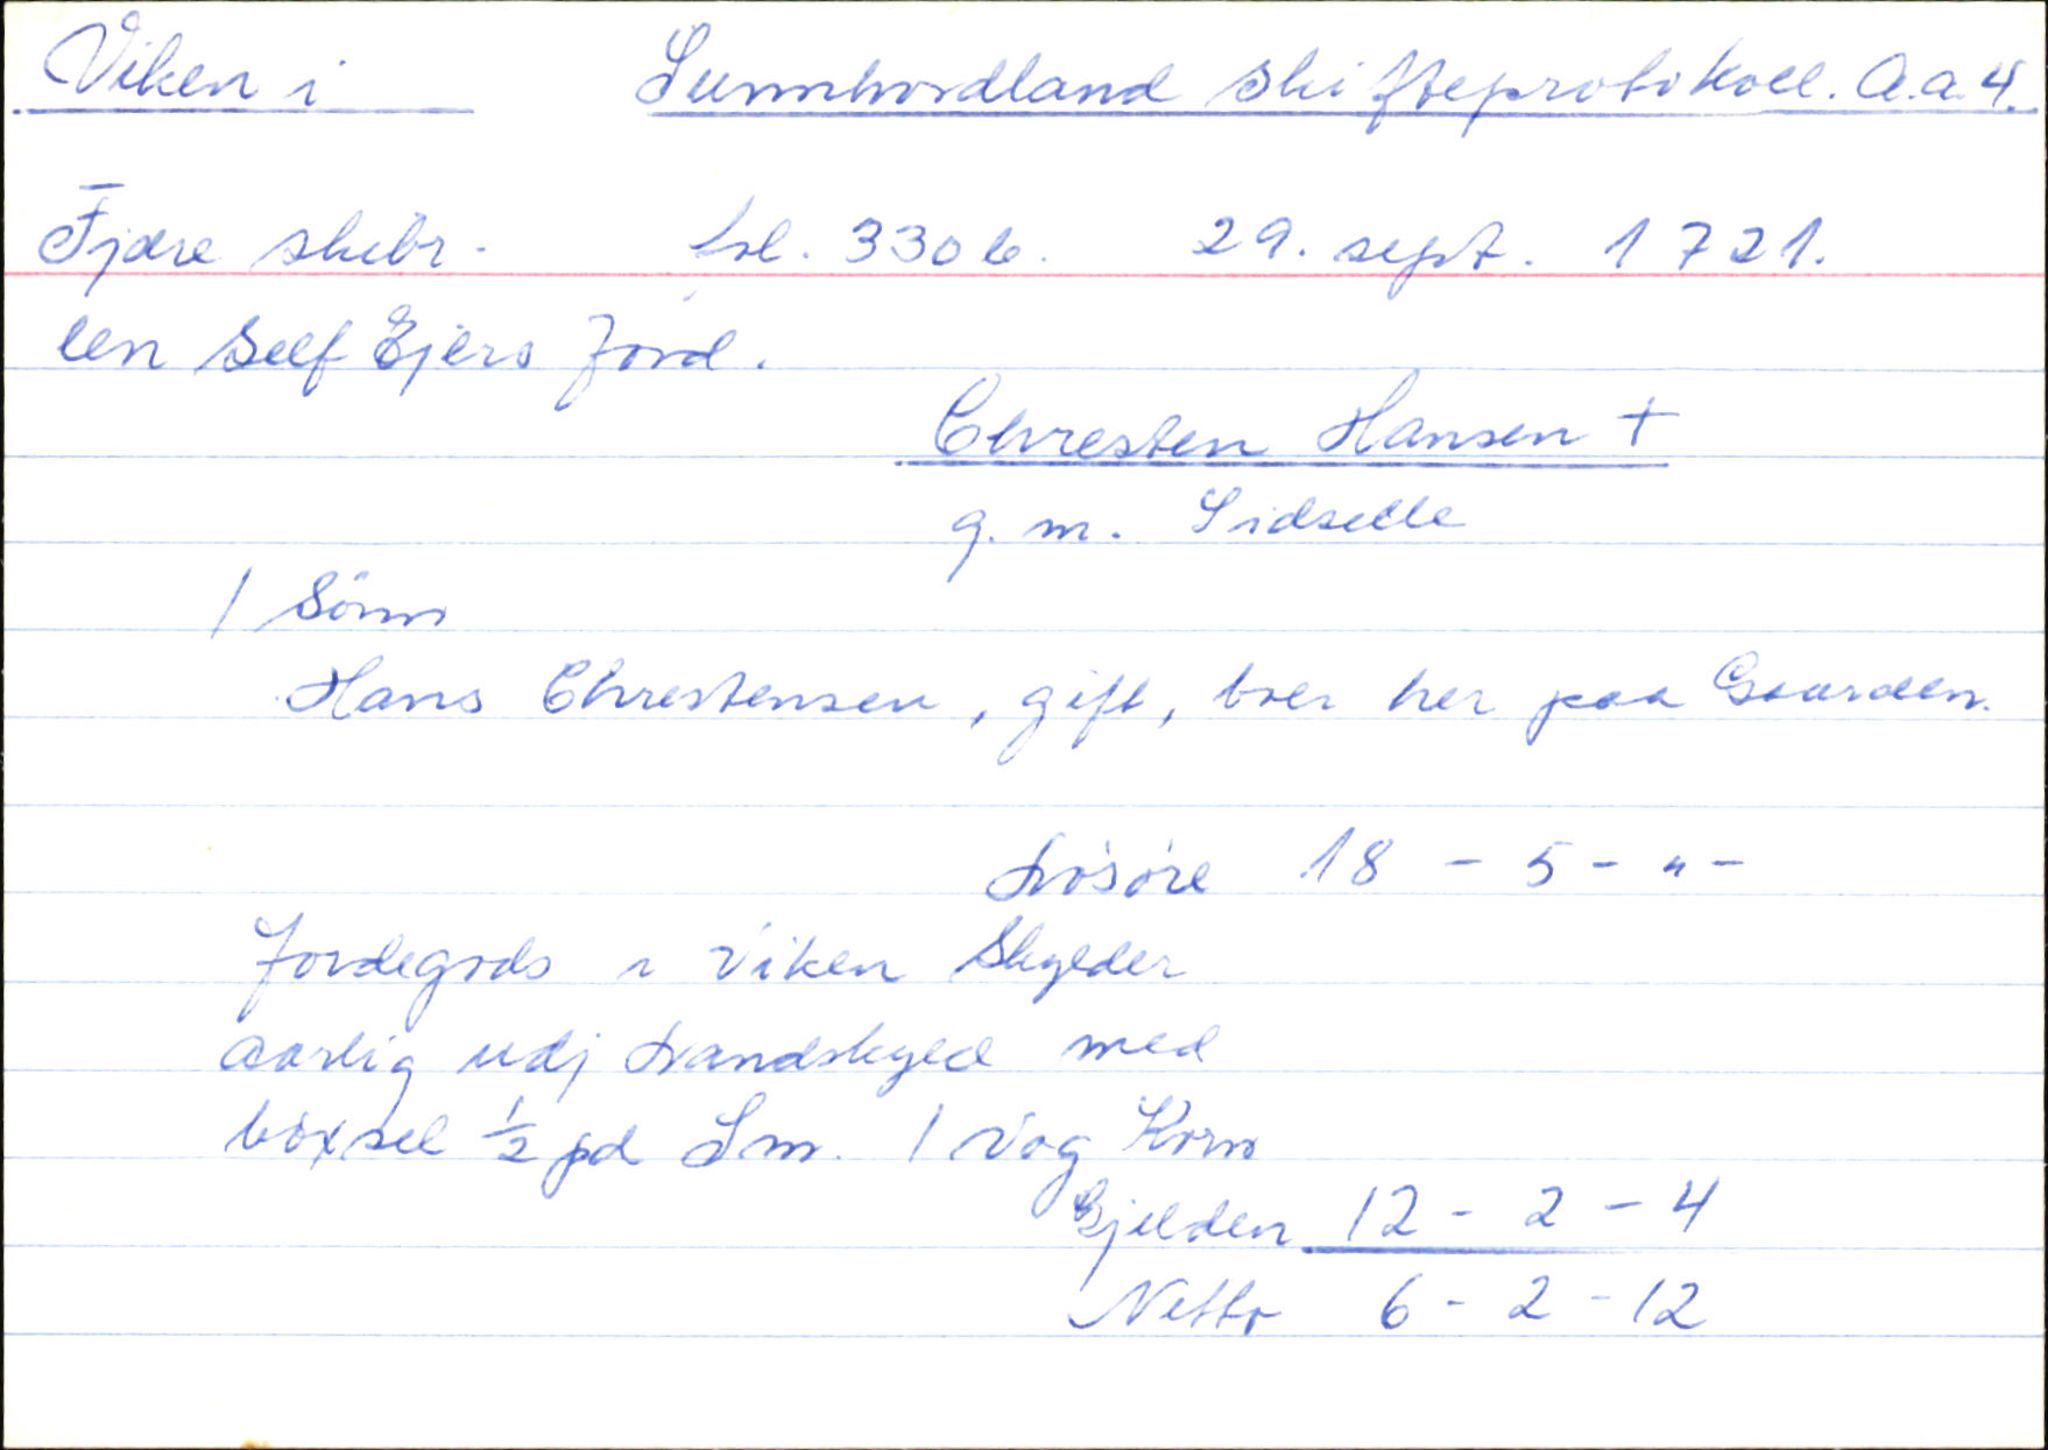 Viken i Sunnhordland skifteprotokoll. A.a.4.
Fjære skibr. bl. 330 b. 29. sept. 1721.
en Self Ejers Jord.
Chresten Hansen +
g. m. Sidselle
1 Sönn
Hans Chrestensen, gift, boer her paa Gaarden.
Lösöre 18 - 5 - " -
Jordegods i Viken Skylder
aarlig udj Landskyld med
böxsel ½ pd Sm. 1 Vog Korn
Gjelden 12 - 2 - 4
Netto 6 - 2 - 12